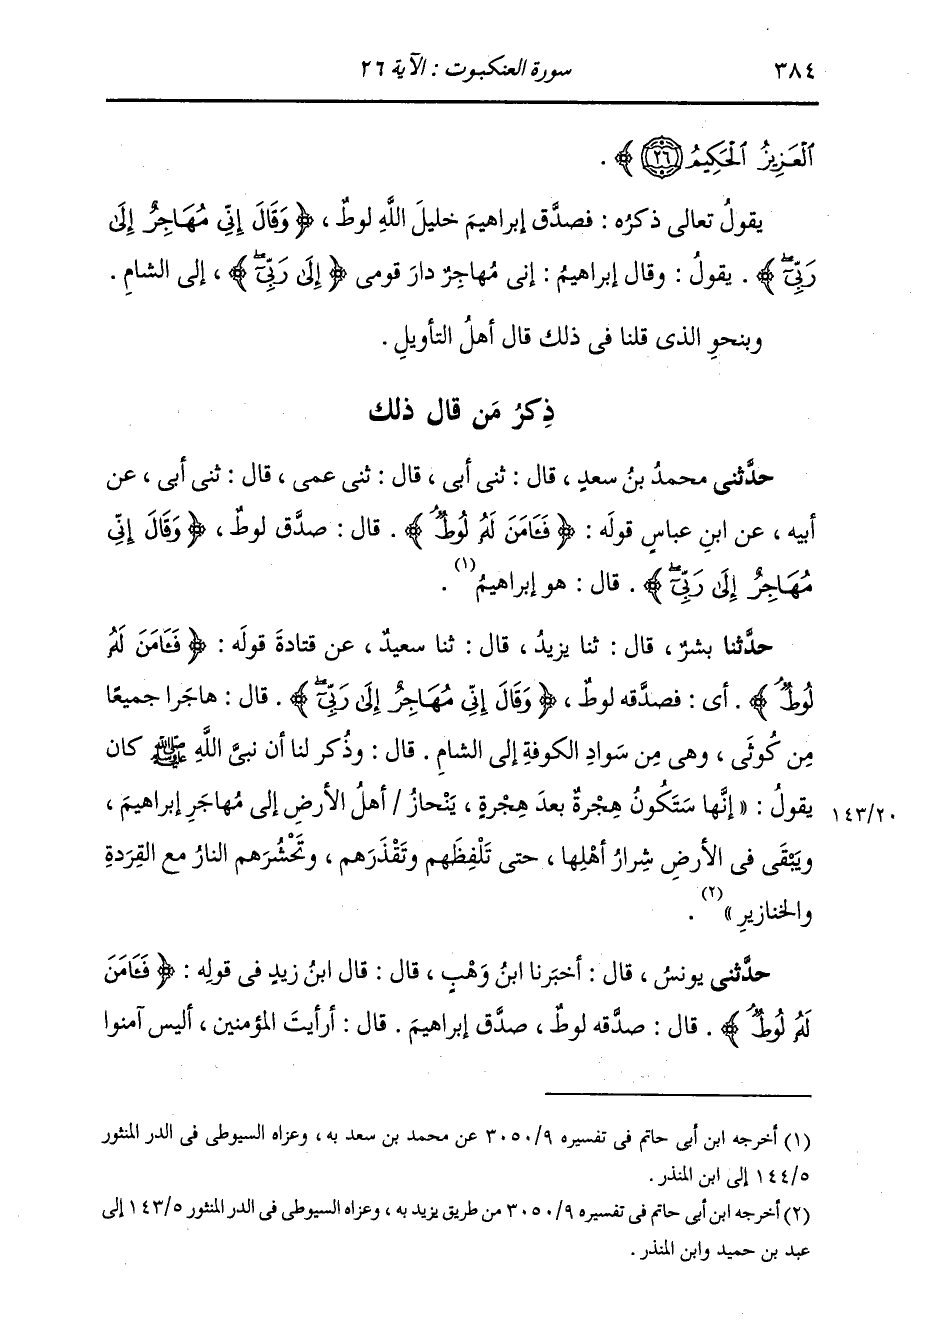 ٣٨٤ سورة العنكبوت : الآية ٢٦
ٱلْعَزِيزُ ٱلْحَكِيمُ ٢٦ ﴾ .
يقولُ تعالى ذكرُه : فصدَّق إبراهيمَ خليلَ اللَّهِ لوطٌ ، ﴿ وَقَالَ إِنِّي مُهَاجِرٌ إِلَىٰ
رَبِّيٓۖ ﴾ . يقولُ : وقال إبراهيمُ : إنى مُهاجرٌ دارَ قومى ﴿ إِلَىٰ رَبِّيٓۖ ﴾ ، إلى الشامِ .
وبنحوِ الذى قلنا فى ذلك قال أهلُ التأويلِ .
ذِكرُ مَن قال ذلك
حدَّثنى محمدُ بنُ سعدٍ ، قال : ثنى أبى ، قال : ثنى عمى ، قال : ثنى أبى ، عن
أبيه ، عن ابنِ عباسٍ قولَه : ﴿ فَـَٔامَنَ لَهُۥ لُوطٌۘ ﴾ . قال : صدَّق لوطٌ ، ﴿ وَقَالَ إِنِّي
مُهَاجِرٌ إِلَىٰ رَبِّيٓۖ ﴾ . قال : هو إبراهيمُ(١) .
حدَّثنا بشرٌ ، قال : ثنا يزيدُ ، قال : ثنا سعيدٌ ، عن قتادةَ قولَه : ﴿ فَـَٔامَنَ لَهُۥ
لُوطٌۘ ﴾ . أى : فصدَّقه لوطٌ ، ﴿ وَقَالَ إِنِّي مُهَاجِرٌ إِلَىٰ رَبِّيٓۖ ﴾ . قال : هاجَرا جميعًا
مِن كُوثَى ، وهى مِن سَوادِ الكوفةِ إلى الشامِ . قال : وذُكر لنا أن نبىَّ اللَّهِ ﷺ كان
يقولُ : « إنَّها سَتَكُونُ هِجْرةٌ بعدَ هِجْرةٍ ، يَنْحازُ / أهلُ الأرضِ إلى مُهاجَرِ إبراهيمَ ، ١٤٣/٢٠
ويَبْقَى فى الأرضِ شِرارُ أهْلِها ، حتى تَلْفِظَهم وتَقْذَرَهم ، وتَحْشُرَهم النارُ مع القِرَدةِ
والخنازيرِ »(٢) .
حدَّثنى يونسُ ، قال : أخبَرنا ابنُ وَهْبٍ ، قال : قال ابنُ زيدٍ فى قولِه : ﴿ فَـَٔامَنَ
لَهُۥ لُوطٌۘ ﴾ . قال : صدَّقه لوطٌ ، صدَّق إبراهيمَ . قال : أرأيتَ المؤمنين ، أليس آمنوا
(١) أخرجه ابن أبى حاتم فى تفسيره ٣٠٥٠/٩ عن محمد بن سعد به ، وعزاه السيوطى فى الدر المنثور
١٤٤/٥ إلى ابن المنذر .
(٢) أخرجه ابن أبى حاتم فى تفسيره ٣٠٥٠/٩ من طريق يزيد به ، وعزاه السيوطى فى الدر المنثور ١٤٣/٥ إلى
عبد بن حميد وابن المنذر .